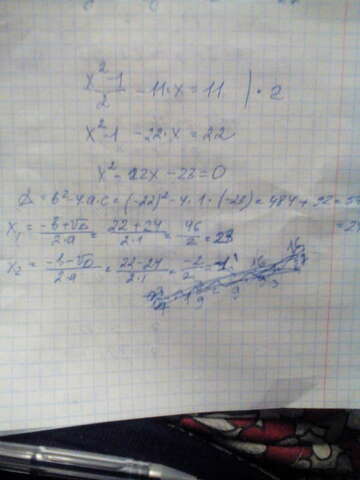 x²-1/2 - 11·x = 11 | · 2
x²-1 - 22·x = 22
x² - 22x - 23 = 0
D = b²-4·a·c = (-22)² - 4·1·(-23) = 484 + 92 = 57
x₁ = -b+√D/2·a = 22+24/2·1 = 46/2 = 23
x₂ = -b-√D/2·a = 22-24/2·1 = -2/2 = -1